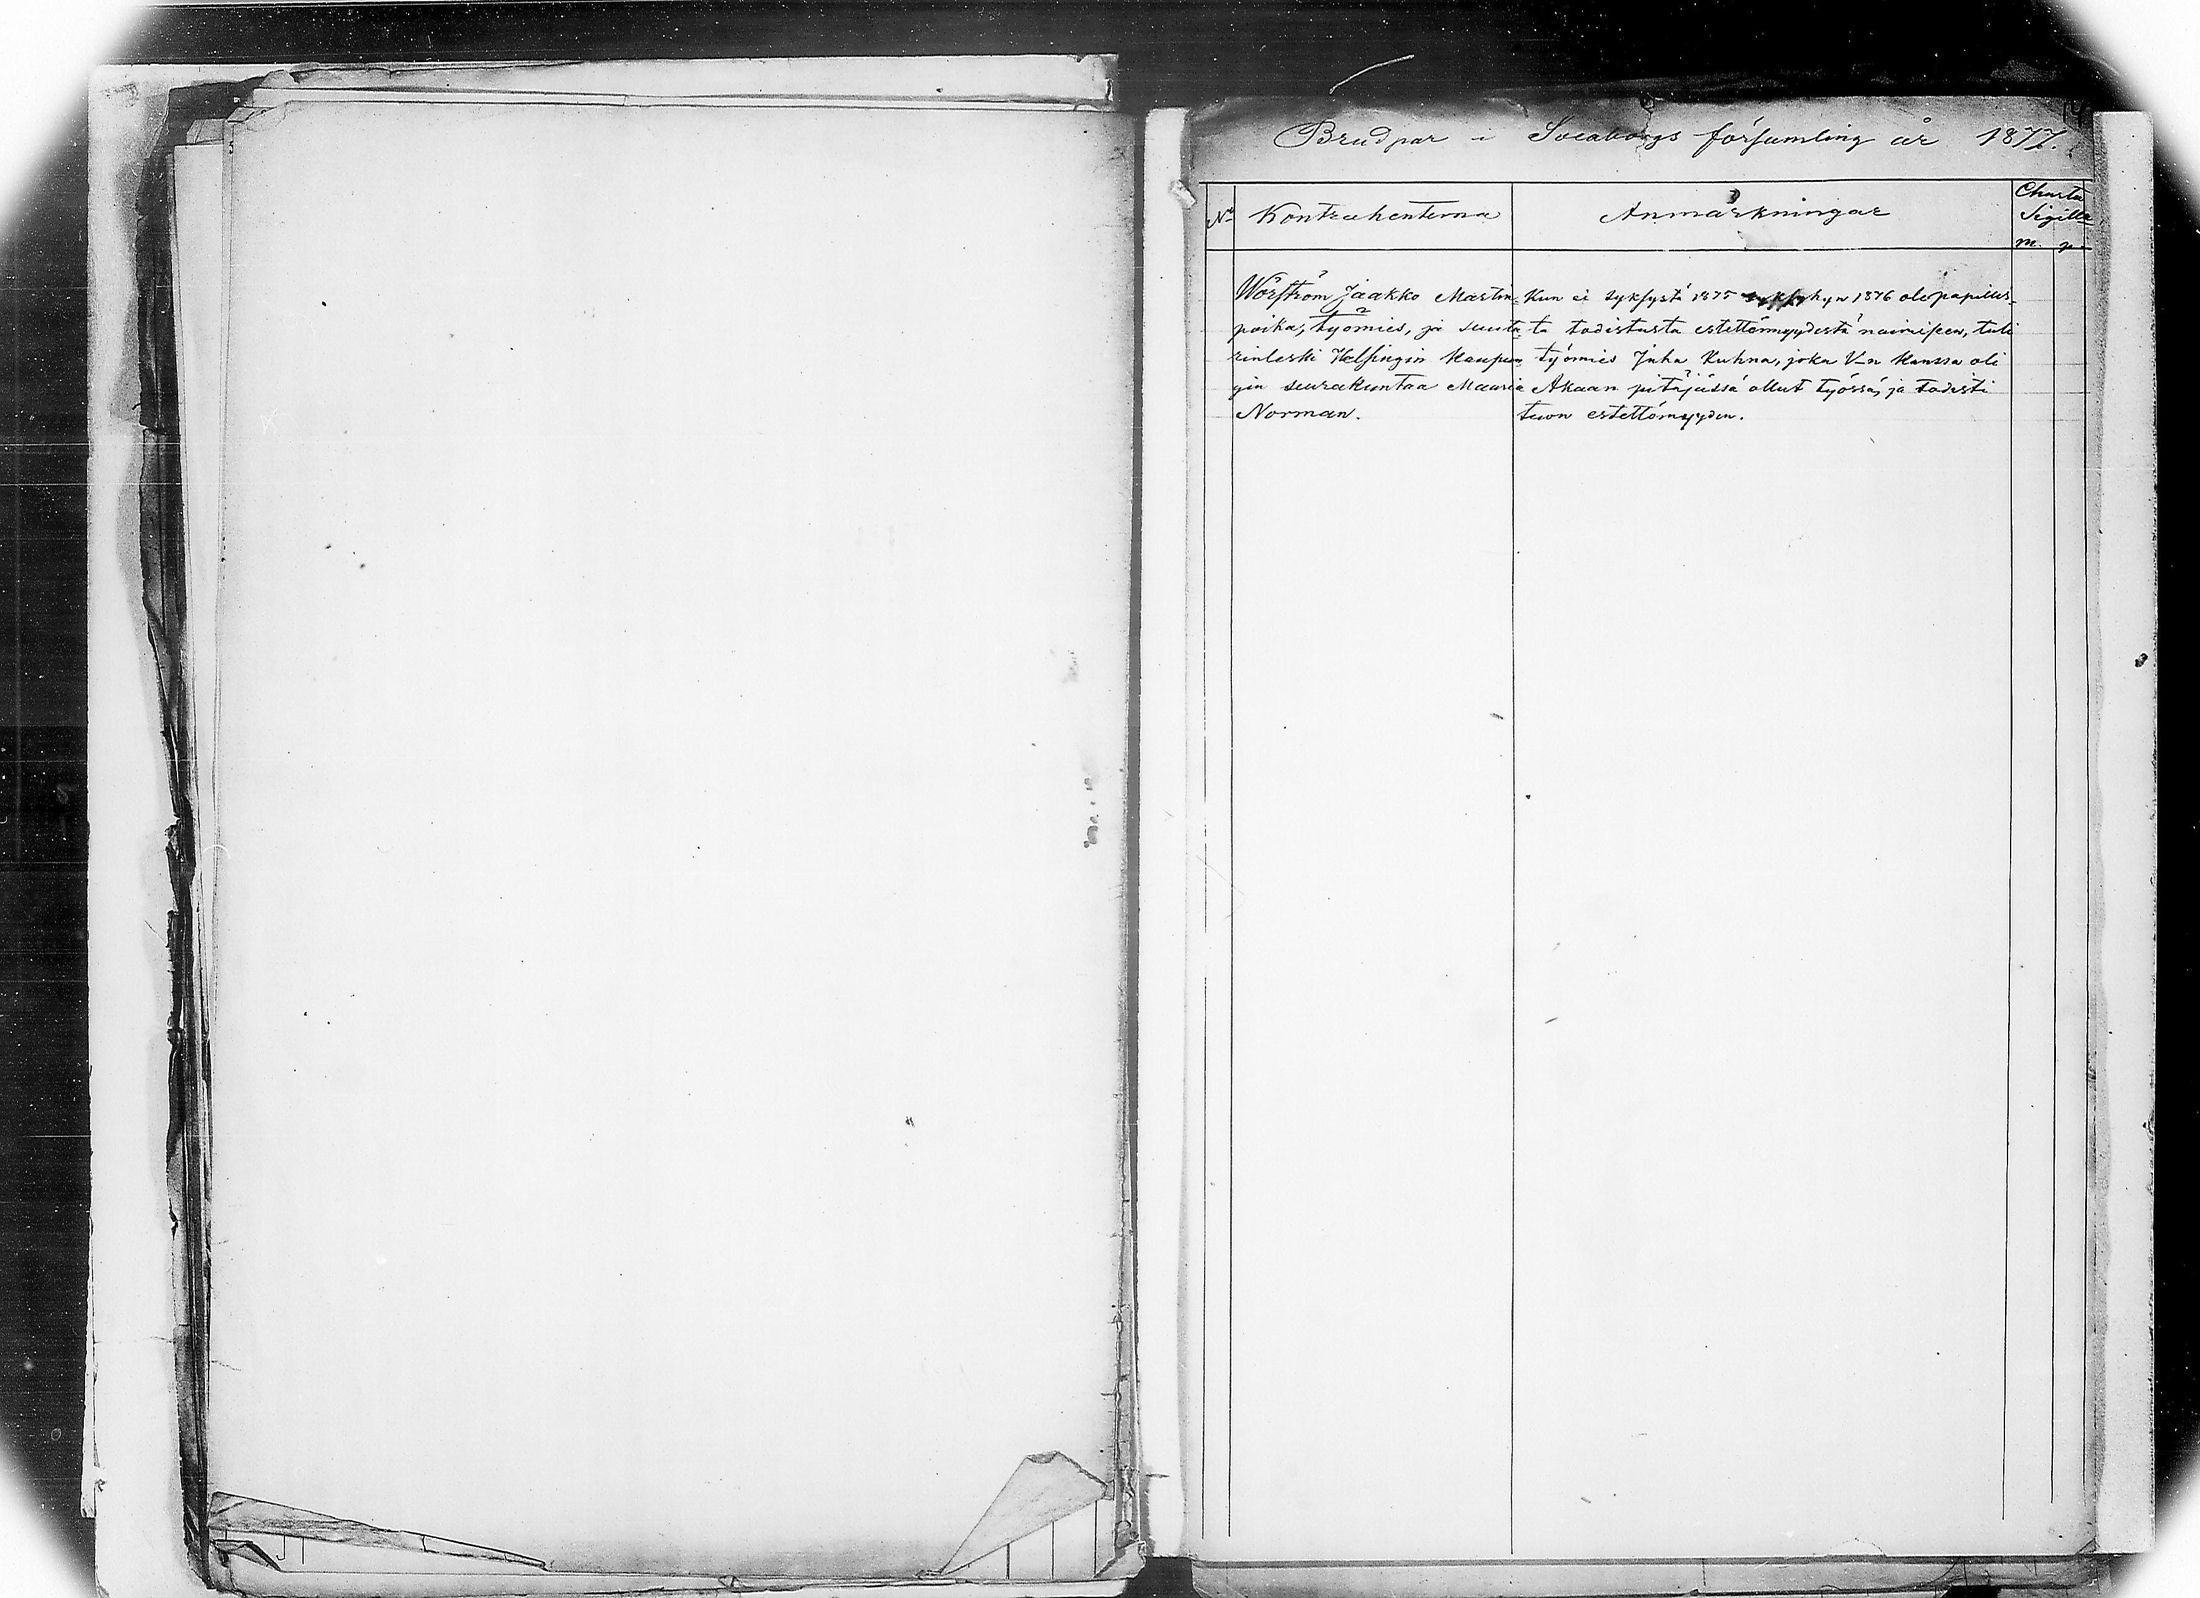 Brudpar i Sveaborgs församling år 1877.
No
Kontrahenterna
Anmärkningar
Charta
Sigilla
m. p.
Wörström Jaakko Martin-
poika, työmies, ja suuta-
rinleski Helsingin kaupun-
gin seurakuntaa Maria
Norman.
Kun ei syksystä 1875 syksyhyn 1876 ole papillis-
ta todistusta estettömyydestä naimiseen, tuli
työmies Juha Kuhna, joka V–n kanssa oli
Akaan pitäjässä ollut työssä, ja todisti
tuon estettömyyden.